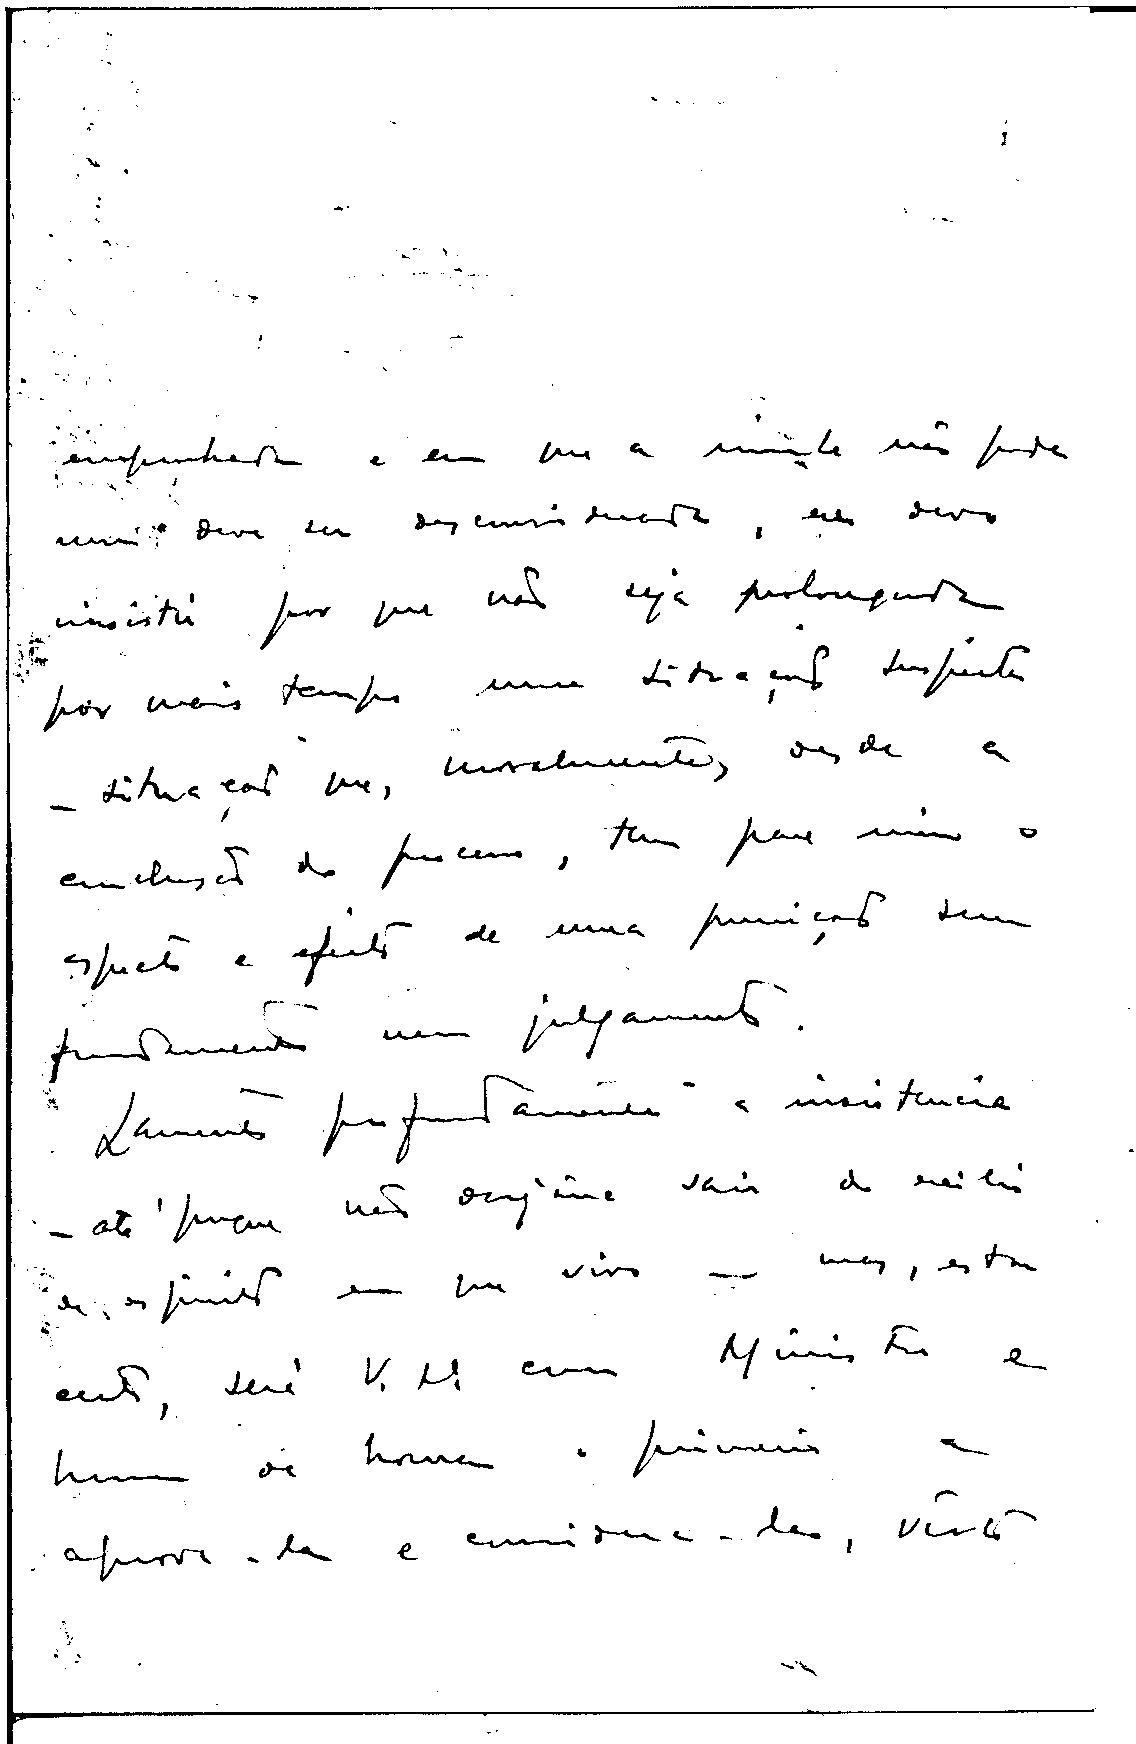 empenhada e em que a minha não pode
nem deve ser desconsiderada, eu devo
insistir por que não seja prolongada
por mais tempo uma situação suspeita
– situação que, moralmente, desde a
conclusão do processo, tem para mim o
aspecto e efeito de uma punição sem
fundamento nem julgamento.
Lamento profundamente a insistencia
– até porque não desejaria sair do exilio
de espirito em que vivo – mas, estou
certo, será V. M. como Ministro e
homem de honra o primeiro a
aprova-la e considera-la, visto